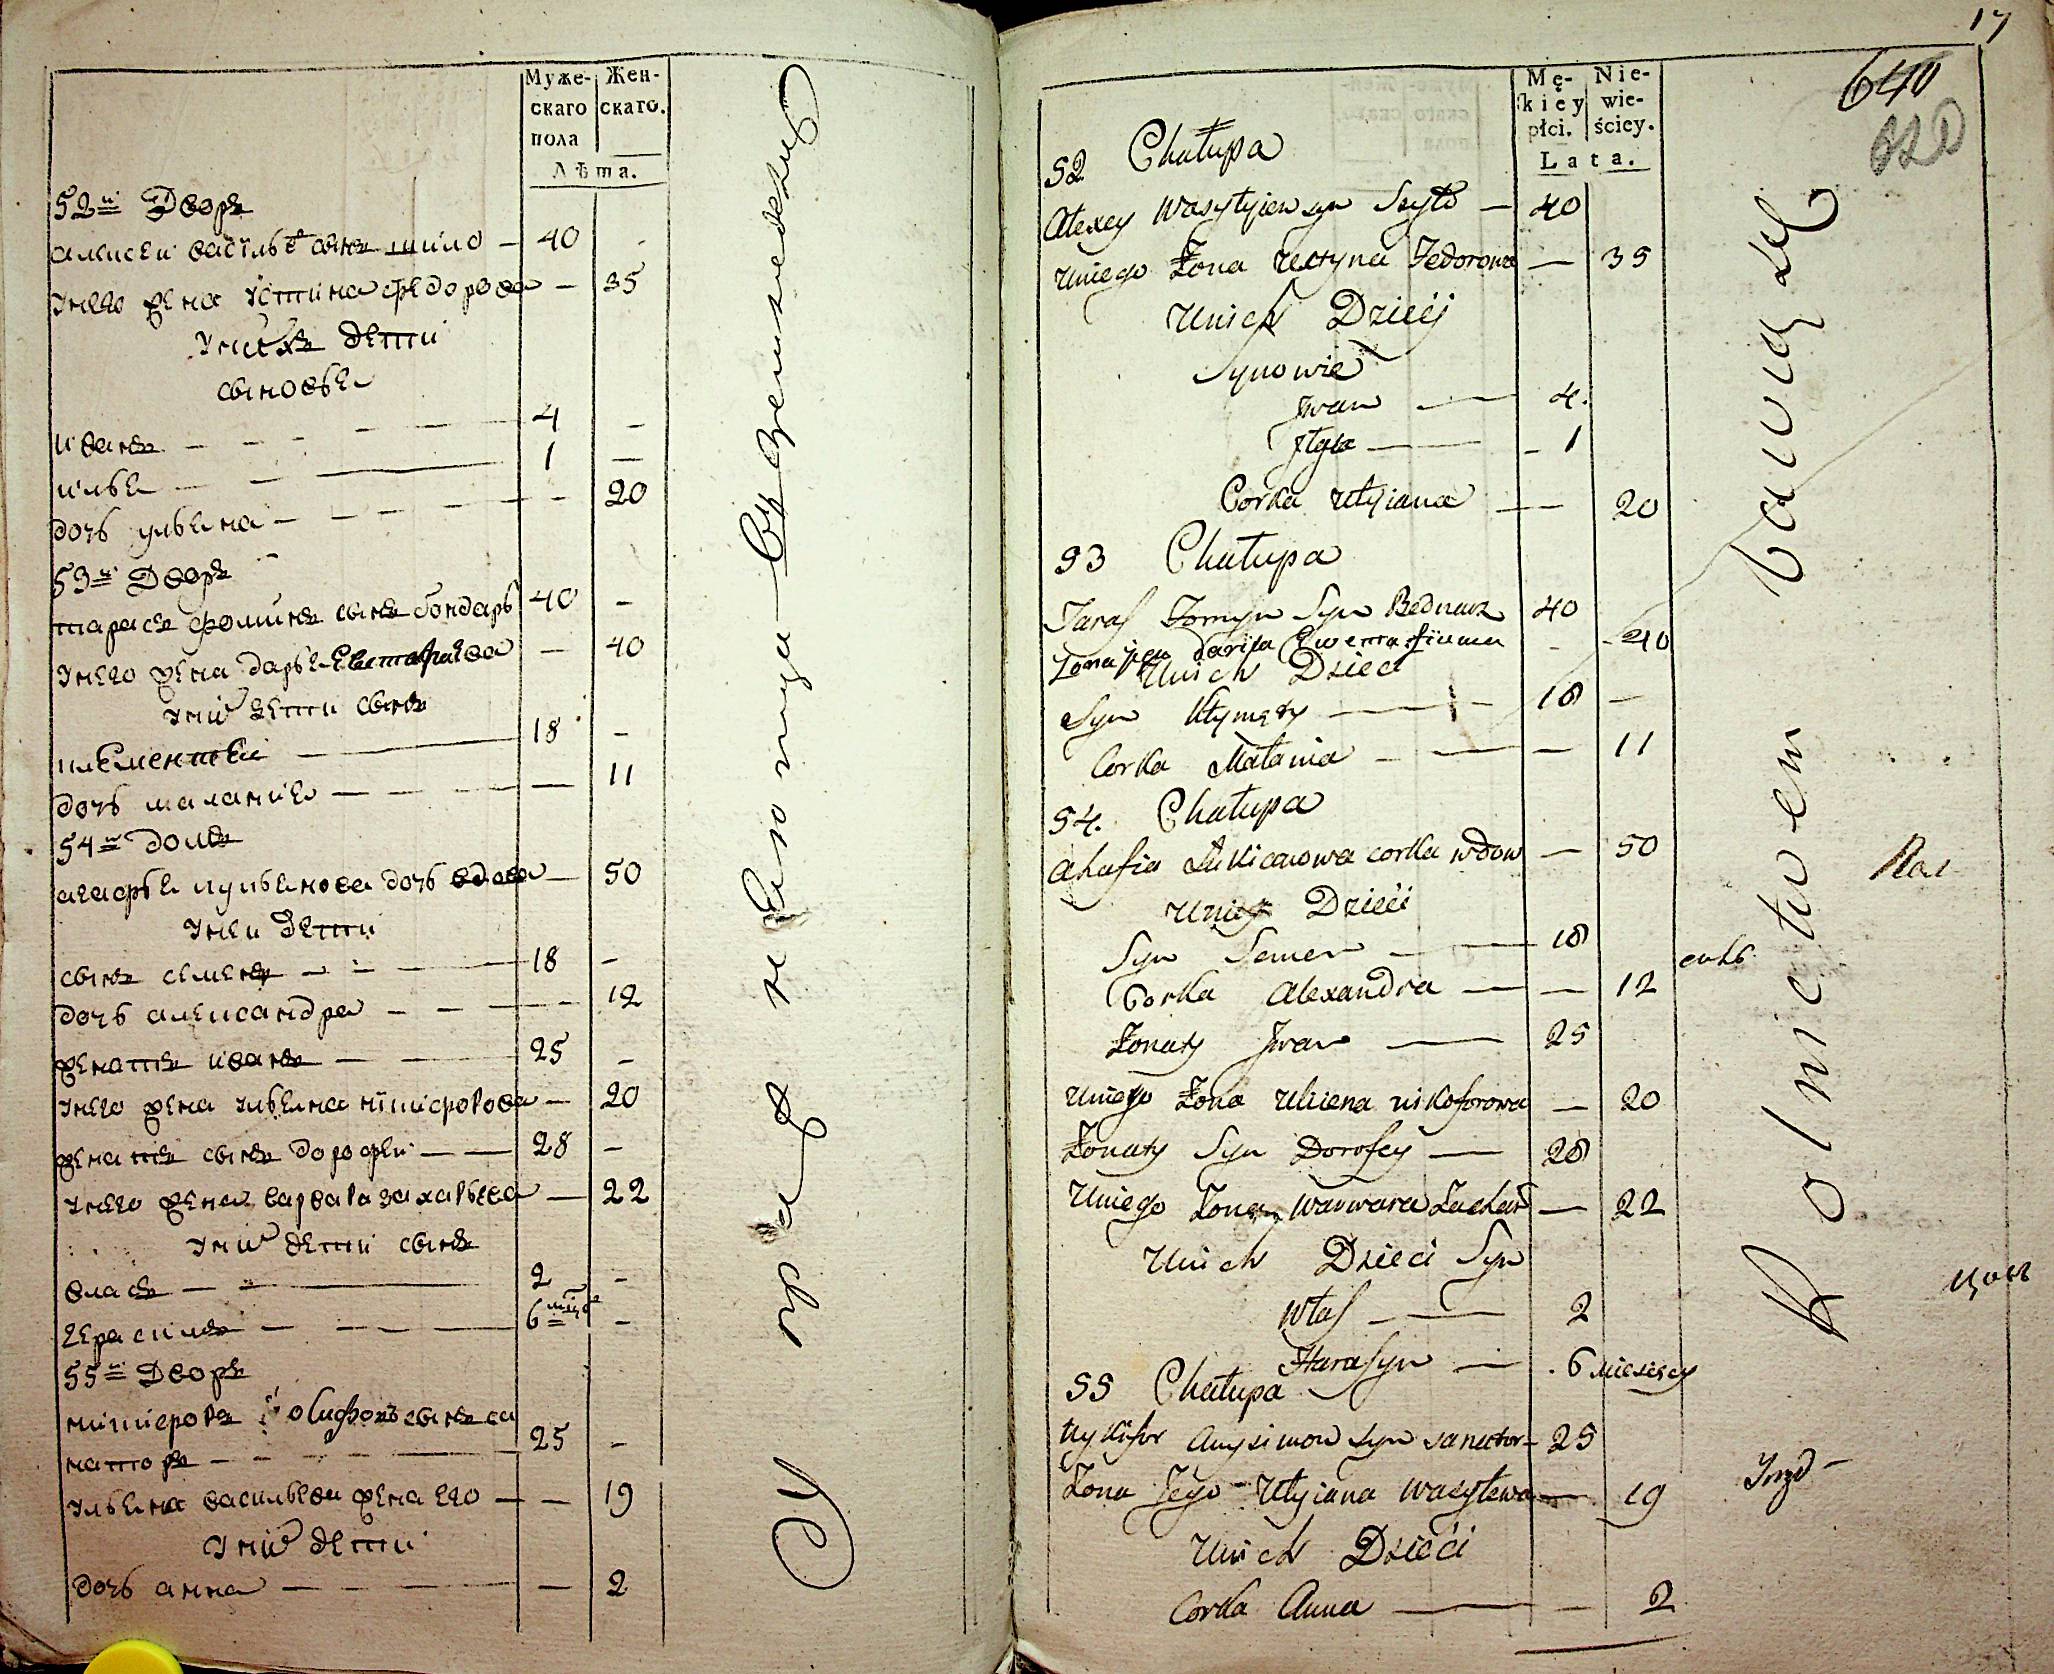 Муже-
скаго
пола
Жен-
скаго.
Лѣта.
52й Дворъ
алексей васильевъ сынъ шило — 40 -
унего жена устина федорова — 35
унихъ дети
сыновья
иванъ — 4 -
илья — 1 —
дочь ульяна — 20
53й Дворъ
тарасъ фоминъ сынъ бондарь 40 -
унего жена дарья Евстафиева — 40
уних дети сынъ
клементей — 18 -
дочь малания — 11
54й домъ
агафья лукьянова дочь вдова — 50
унеи дети
сынъ семенъ — 18 -
дочь александра — 12
женатъ иванъ — 25 -
унего жена ульяна никифорова — 20
женатъ сынъ дорофеи — 28 -
унего жена варвара захарьева — 22
уних дети сынъ
власъ — 2 -
герасимъ — 6 -
55й Дворъ
никифоръ сынъ са
наторъ — 25 -
ульяна васильева жена его — 19
уних дети
дочь анна — 2
17
640
Mę-
skiey
płci.
Nie-
wie-
ściey.
Lata.
52 Chałupa
Alexey Wasylyiew syn Szyło — 40
Uniego Żona Ustyna Fedorowa — 35
Unich Dzieci
Synowie
Iwan — 4.
Ilyia — 1
Corka Ulyiana — 20
53 Chałupa
Taras Fomyn Syn Bednarz 40
Zona jego Darya Ewstafiiewa - 40
Unich Dzieci
Syn Klymęty — 18 —
Corka Malania — 11
54. Chałupa
Ahafia Lukianowa corka wdow — 50
Uniey Dzieci
Syn Semen — 18
Corka Alexandra — 12
Żonaty Iwan — 25
Uniego Żona Uliena nikoforowa — 20
Żonaty Syn Dorofey — 28
Uniego Żona Warwara Zachar — 22
Unich Dzieci Syn
Włas — 2
Harasyn — 6 miesięcy
55 Chałupa
Nykifor Anysimow syn sanator — 25
Żona Jego Ulyiana Wasylewa — 19
Unich Dzieci
Corka Anna — 2